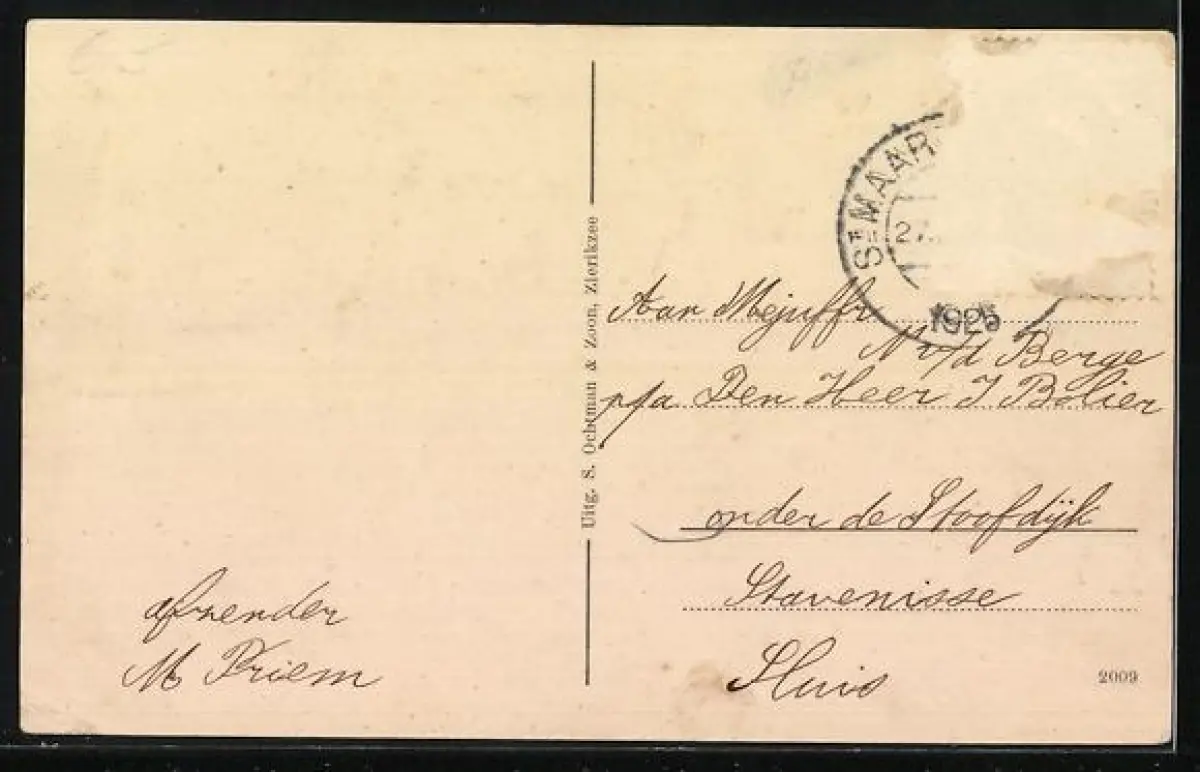 Sᵀ MAAR
27.
1925
Aan Mejuffr
N v/d Berge
p/a Den Heer J Bolier
onder de Stoofdijk
Stavenisse
Sluis
afzender
M Priem
Uitg. S. Ochtman & Zoon, Zierikzee
2009